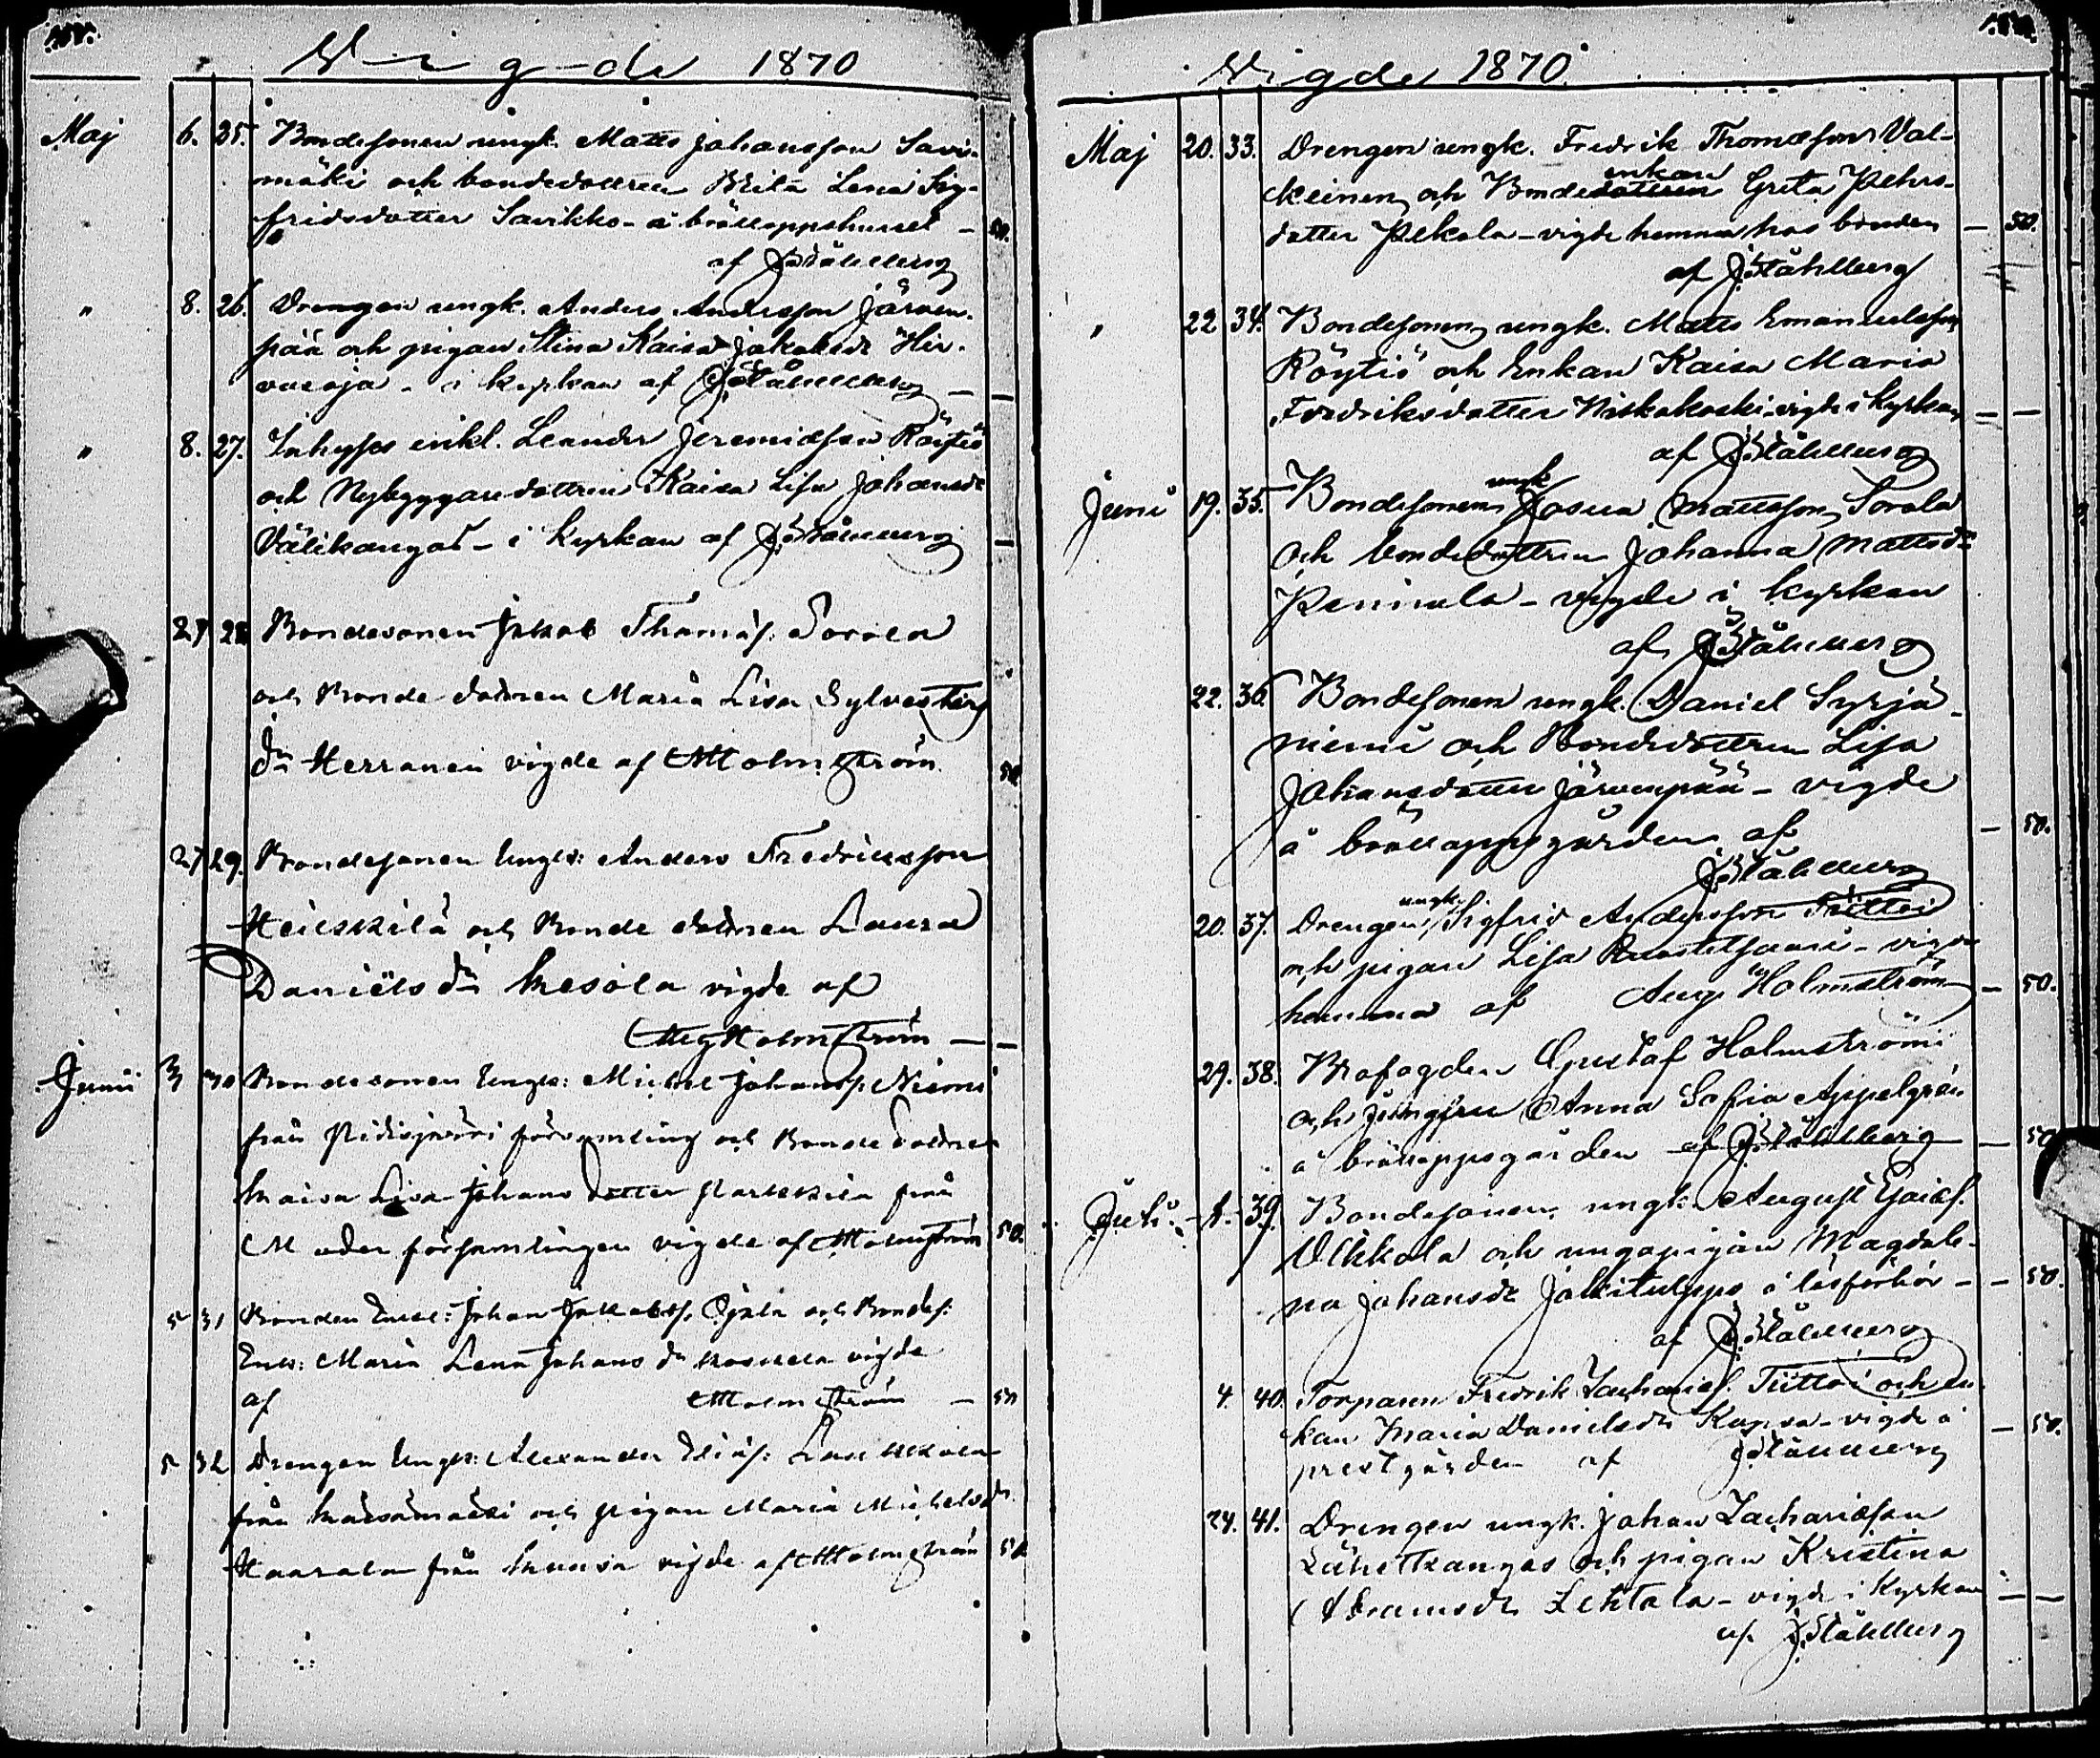 Vigde 1870
Maj 6. 25. Bondesonen ungk. Matts Johansson Savi-
mäki och bondedottren Brita Lena Sig-
fridsdotter Savikko - å bröllopshuset - 50.
af J Ståhlberg
" 8. 26. Drengen ungk. Anders Andersson Järven-
pää och pigan Stina Kaisa Jakobsdr Hir-
vaoja - i kyrkan af J Ståhlberg -
" 8. 27. Inhyses enkl. Leander Jeremiasson Röytiö
och Nybyggaredottren Kaisa Lisa Johansdr
Välikangas - i kyrkan af J. Ståhlberg -
27 28 Bondesonen Jakob Thomas. Sorola
och Bonde dottren Maria Lisa Sylvesters
dr Herranen vigde af A Holmström 50
27 29. Bondesonen Ungk: Anders Fredriksson
Heikkilä och Bonde dottren Laura
Daniels dr Kesola vigde af
Aug Holmström -
Junii 3 30 Bondesonen Ungk: Michel Johanss. Niemi
från Pidisjärvi församling och Bonde dottren
Kaisa Lisa Johans dotter Parkkila från
M oder församlingen vigde af A Holmström 50.
5 31 Bonden Enkl: Johan Jakobss. Ojala och Bondes:
Enk: Maria Lena Johans dr Koskela vigde
af A Holmström - 50
5 32 Drengen Ungk: Alexander Elias:
från och pigan Maria Michelsdr
från vigde af A Holmström 50
Vigde 1870
Maj 20. 33. Drengen ungk. Fredrik Thomasson Val-
keinen och Bondeenkan Greta Pehrs-
dotter Pekola - vigde hemma hos bonden - 50.
af J. Ståhlberg
" 22 34. Bondesonen ungk. Matts Emanuelsson
Röytiö och Enkan Kaisa Maria
Fredriksdotter Niskakoski - vigde i kyrkan -
af J Ståhlberg
Juni 19. 35. Bondesonen ungk Josua Mattsson Sorola
och bondedottren Johanna Mattsdr
Pennala - vigde i kyrkan
af J Ståhlberg
22. 36. Bondesonen ungk. Daniel Syrjä-
niemi och Bondedottren Lisa
Johansdotter Järvenpää - vigde
å bröllopsgården af - 50.
J Ståhlberg
20. 37. Drengen ungk. Sigfrid Andersson Tiitto
och pigan Lisa - vigde
hemma af Aug. Holmström - 50.
29. 38. Brofogden Gustaf Holmström
och Jungfru Anna Sofia Appelgrén
å bröllopsgården af J. Ståhlberg - 50
Juli. 1. 39. Bondesonen ungk. August Esaiss.
Ulkkola och ungapigan Magdale-
na Johansdr Jolkitulppo å läsförhör - - 50.
af J. Ståhlberg
4. 40. Torparen Fredrik Zachariss. Tiitto och En-
kan Maria Danielsdr Kapsa - vigde å - 50.
prestgården af J Ståhlberg
24. 41. Drengen ungk. Johan Zachariasson
Lähetkangas och pigan Kristina
Abramsdr Lehtola - vigde i Kyrkan -
af J. Ståhlberg